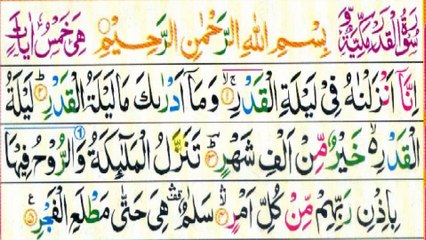 سُوْرَةُ الْقَدْرِ مَكِّيَّةٌ بِسْمِ اللهِ الرَّحْمٰنِ الرَّحِيْمِ هِىَ خَمْسُ اٰيَاتٍ
اِنَّاۤ اَنْزَلْنٰهُ فِىْ لَيْلَةِ الْقَدْرِ ۚۖ‏﴿۱﴾ وَمَاۤ اَدْرٰٮكَ مَا لَيْلَةُ الْقَدْرِؕ‏﴿۲﴾ لَيْلَةُ
الْقَدْرِ ۙ خَيْرٌ مِّنْ اَلْفِ شَهْرٍؕ‏﴿۳﴾ تَنَزَّلُ الْمَلٰٓٮِٕكَةُ وَالرُّوْحُ فِيْهَا
بِاِذْنِ رَبِّهِمْ مِّنْ كُلِّ اَمْرٍۛ ۙ‏﴿۴﴾ سَلٰمٌ ۛ هِىَ حَتّٰى مَطْلَعِ الْفَجْرِ‏﴿۵﴾ ع